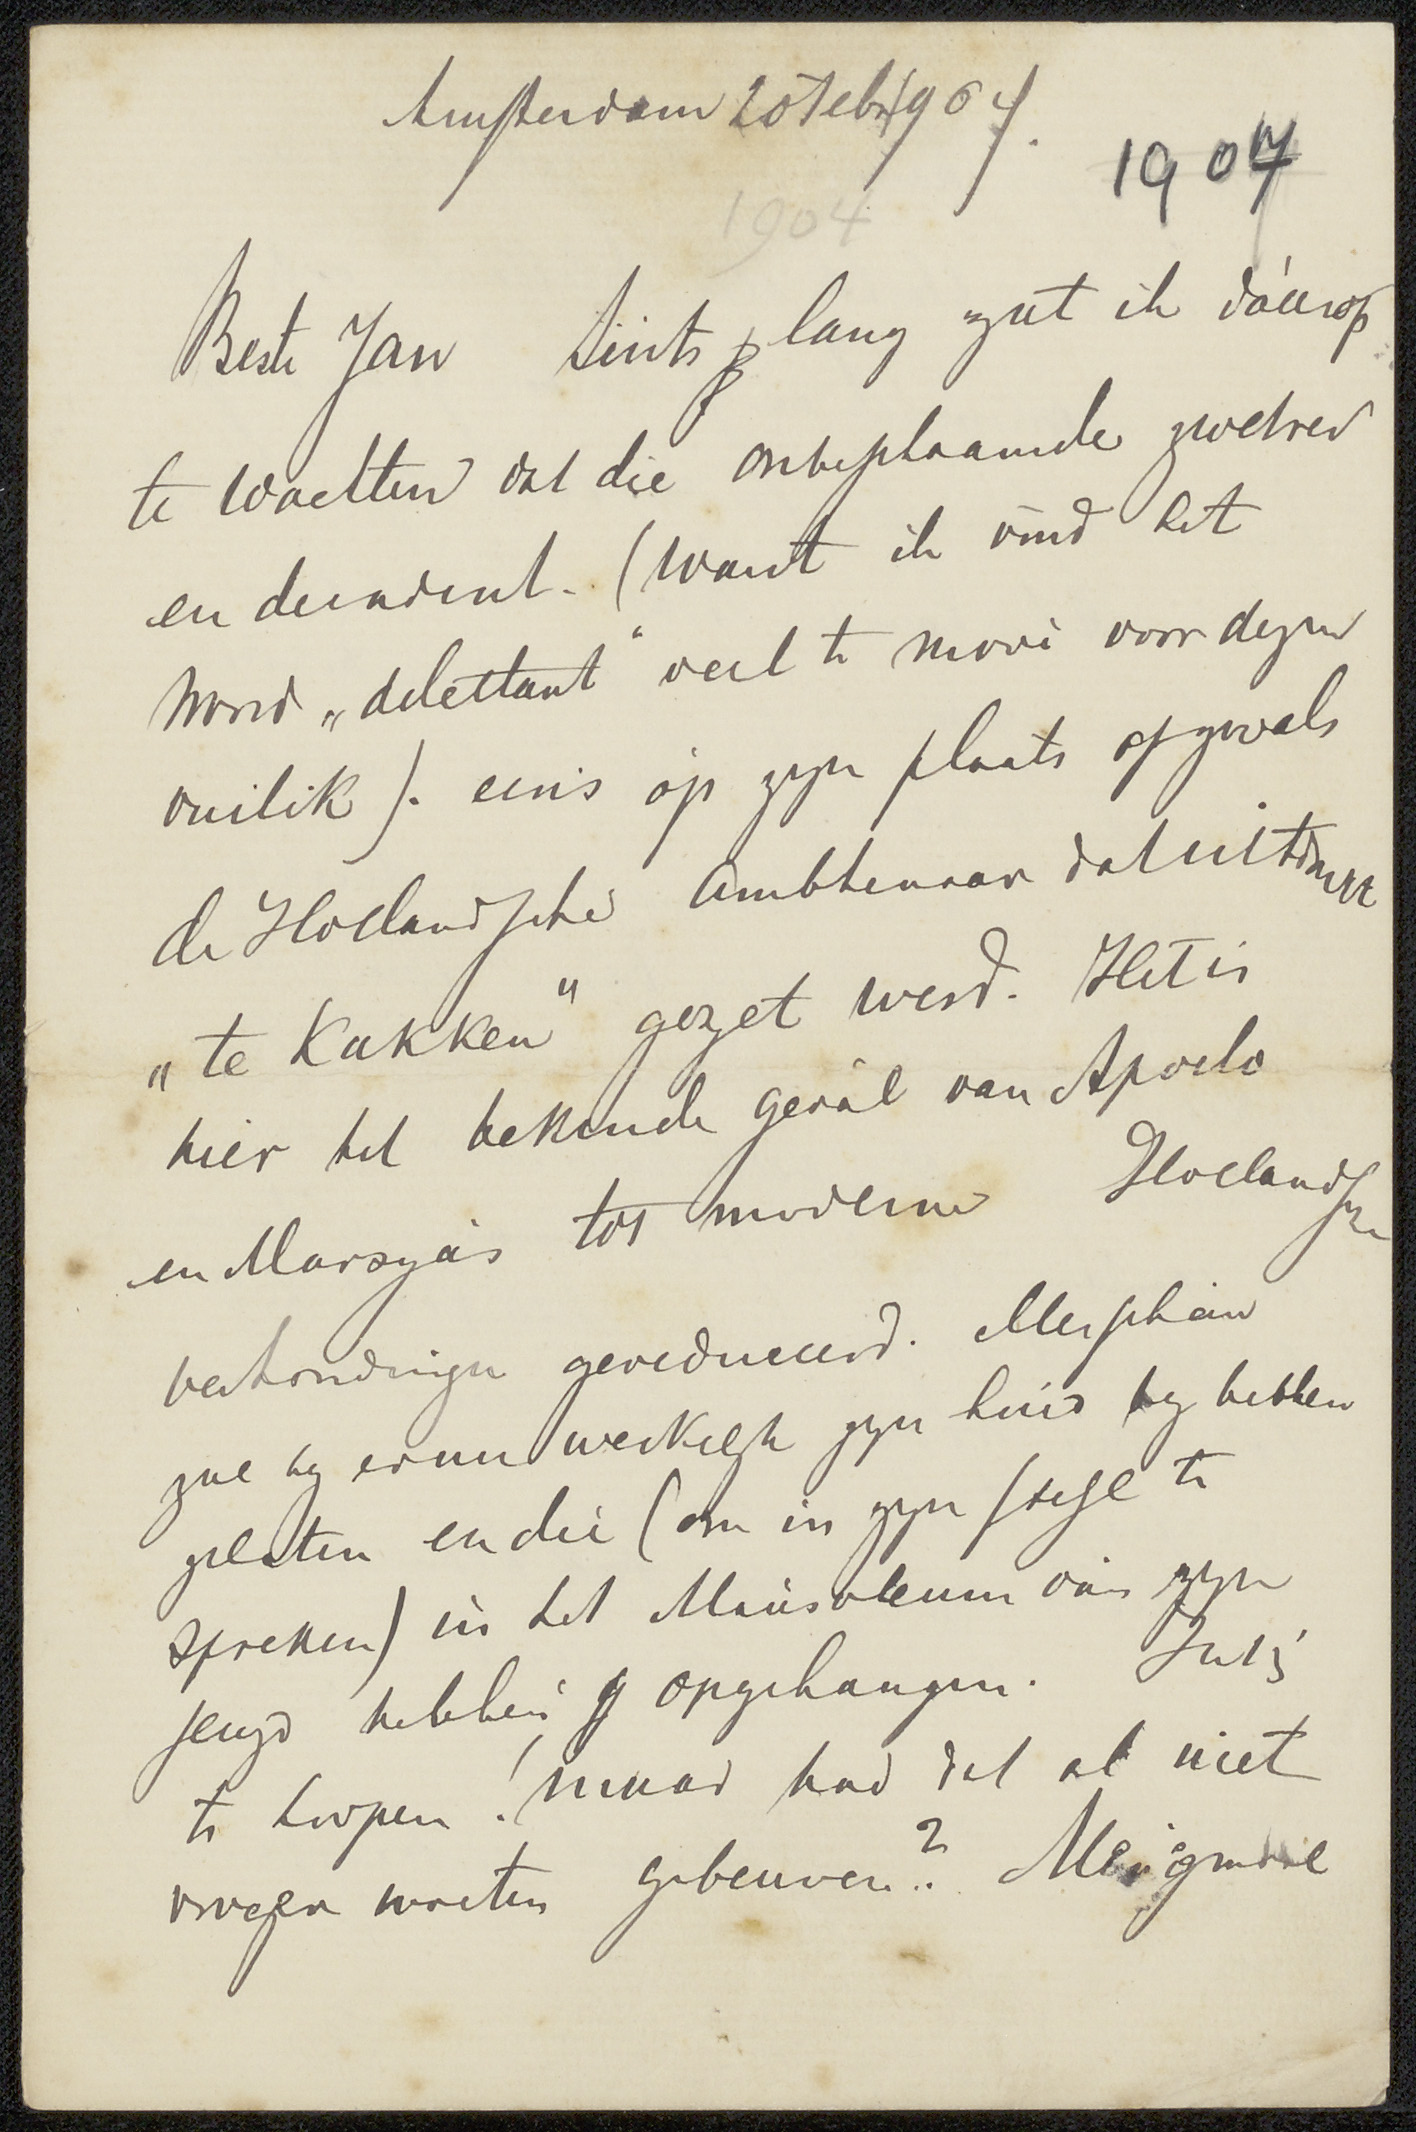 Amsterdam 20 Febr 1904.
1907
1904
Beste Jan Sints lang zat ik dáarop
te wachten dat die onbeplaamde zwetser
en decadent. (Want ik vind het
woord „dilettant" veel te mooi voor dezen
vuilik). eens op zyn plaats of zooals
de Hollandsche ambtenaar dat uitdrukt
„te Kakken" gezet werd. Het is
hier het bekende geval van Apollo
en Marsyas tot moderne Hollandsche
verhoudingen gereduceerd. Misschien
zal hy ernu werkelyk zyn huid by hebben
gelaten en die (om in zyn styl te
spreken) in het Mausoleum van zyn
jeugd hebben opgehangen. Het is
te hopen! maar had dat al niet
vroeger moeten gebeuren?